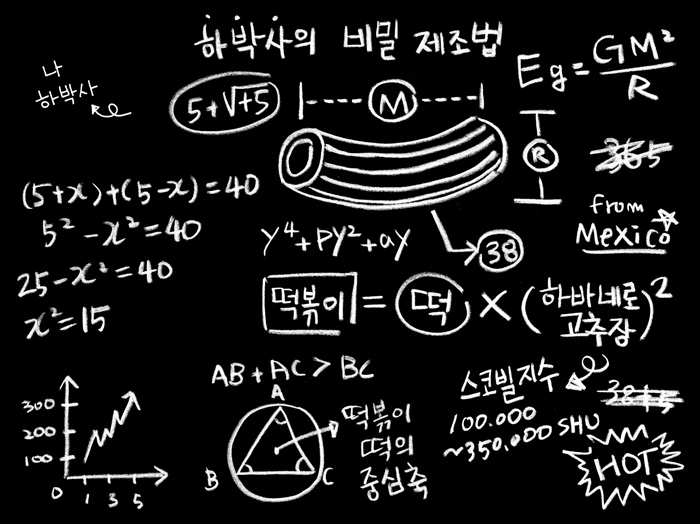 하박사의 비밀 제조법
나
하박사
5+√+5
M
Eg = GM²/R
R
365
(5+x)+(5-x)=40
5²-x²=40
25-x²=40
x²=15
y⁴+py²+ay
38
from
Mexico
떡볶이 = 떡 × (하바네로 고추장)²
AB+AC>BC
스코빌지수
100.000
~350.000 SHU
38+5
HOT
300
200
100
0 1 3 5
A
B C
떡볶이
떡의
중심축